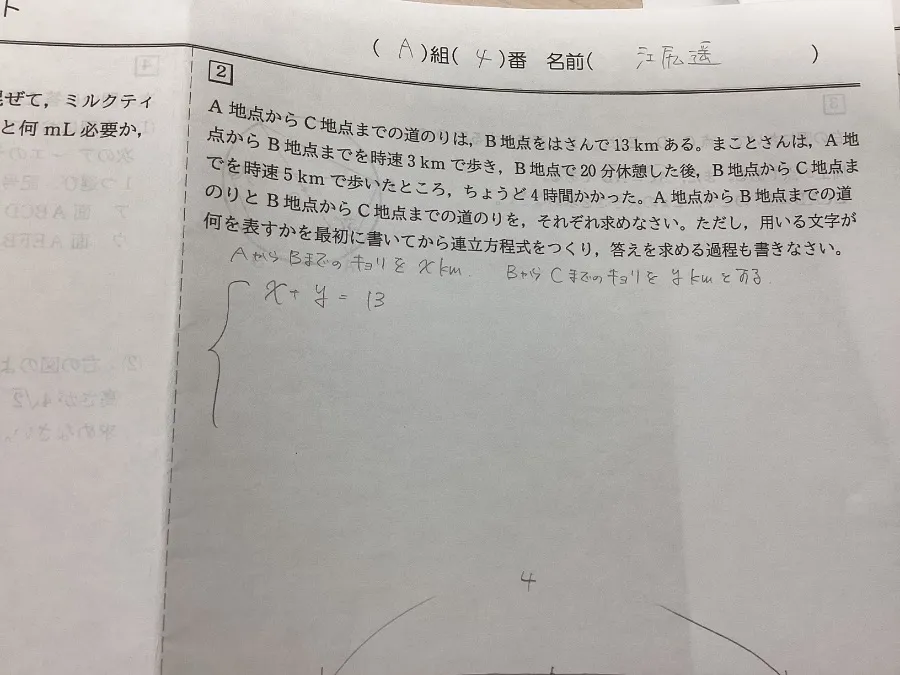 ト
( A )組( 4 )番 名前( 江尻遥 )
2
A 地点から C 地点までの道のりは，B 地点をはさんで 13 km ある。まことさんは，A 地
点から B 地点までを時速 3 km で歩き，B 地点で 20 分休憩した後，B 地点から C 地点ま
でを時速 5 km で歩いたところ，ちょうど 4 時間かかった。A 地点から B 地点までの道
のりと B 地点から C 地点までの道のりを，それぞれ求めなさい。ただし，用いる文字が
何を表すかを最初に書いてから連立方程式をつくり，答えを求める過程も書きなさい。
AからBまでのキョリを x km. BからCまでのキョリを y kmとする.
x + y = 13
4
混ぜて，ミルクティ
と何 mL 必要か，